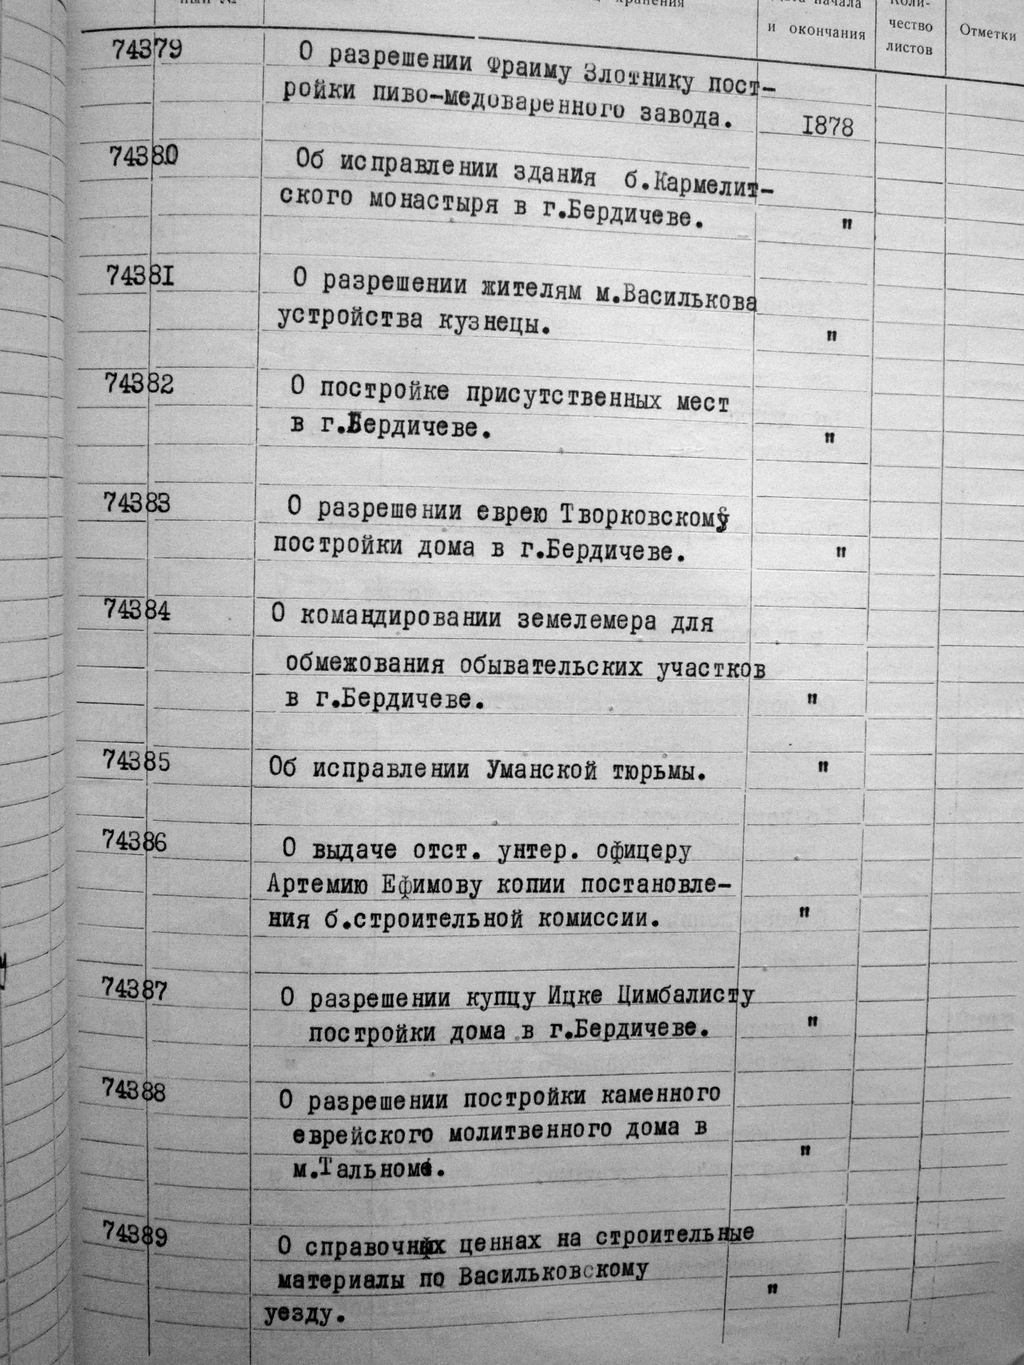 хранения
и окончания
чество
листов
Отметки
74379 О разрешении Фраиму Злотнику пост-
ройки пиво-медоваренного завода. 1878
74380 Об исправлении здания б.Кармелит-
ского монастыря в г.Бердичеве. "
74381 О разрешении жителям м.Василькова
устройства кузнецы. "
74382 О постройке присутственных мест
в г.Бердичеве. "
74383 О разрешении еврею Творковскому
постройки дома в г.Бердичеве. "
74384 О командировании земелемера для
обмежования обывательских участков
в г.Бердичеве. "
74385 Об исправлении Уманской тюрьмы. "
74386 О выдаче отст. унтер. офицеру
Артемию Ефимову копии постановле-
ния б.строительной комиссии. "
74387 О разрешении купцу Ицке Цимбалисту
постройки дома в г.Бердичеве. "
74388 О разрешении постройки каменного
еврейского молитвенного дома в
м.Тальноме. "
74389 О справочных ценнах на строительные
материалы по Васильковскому
уезду. "